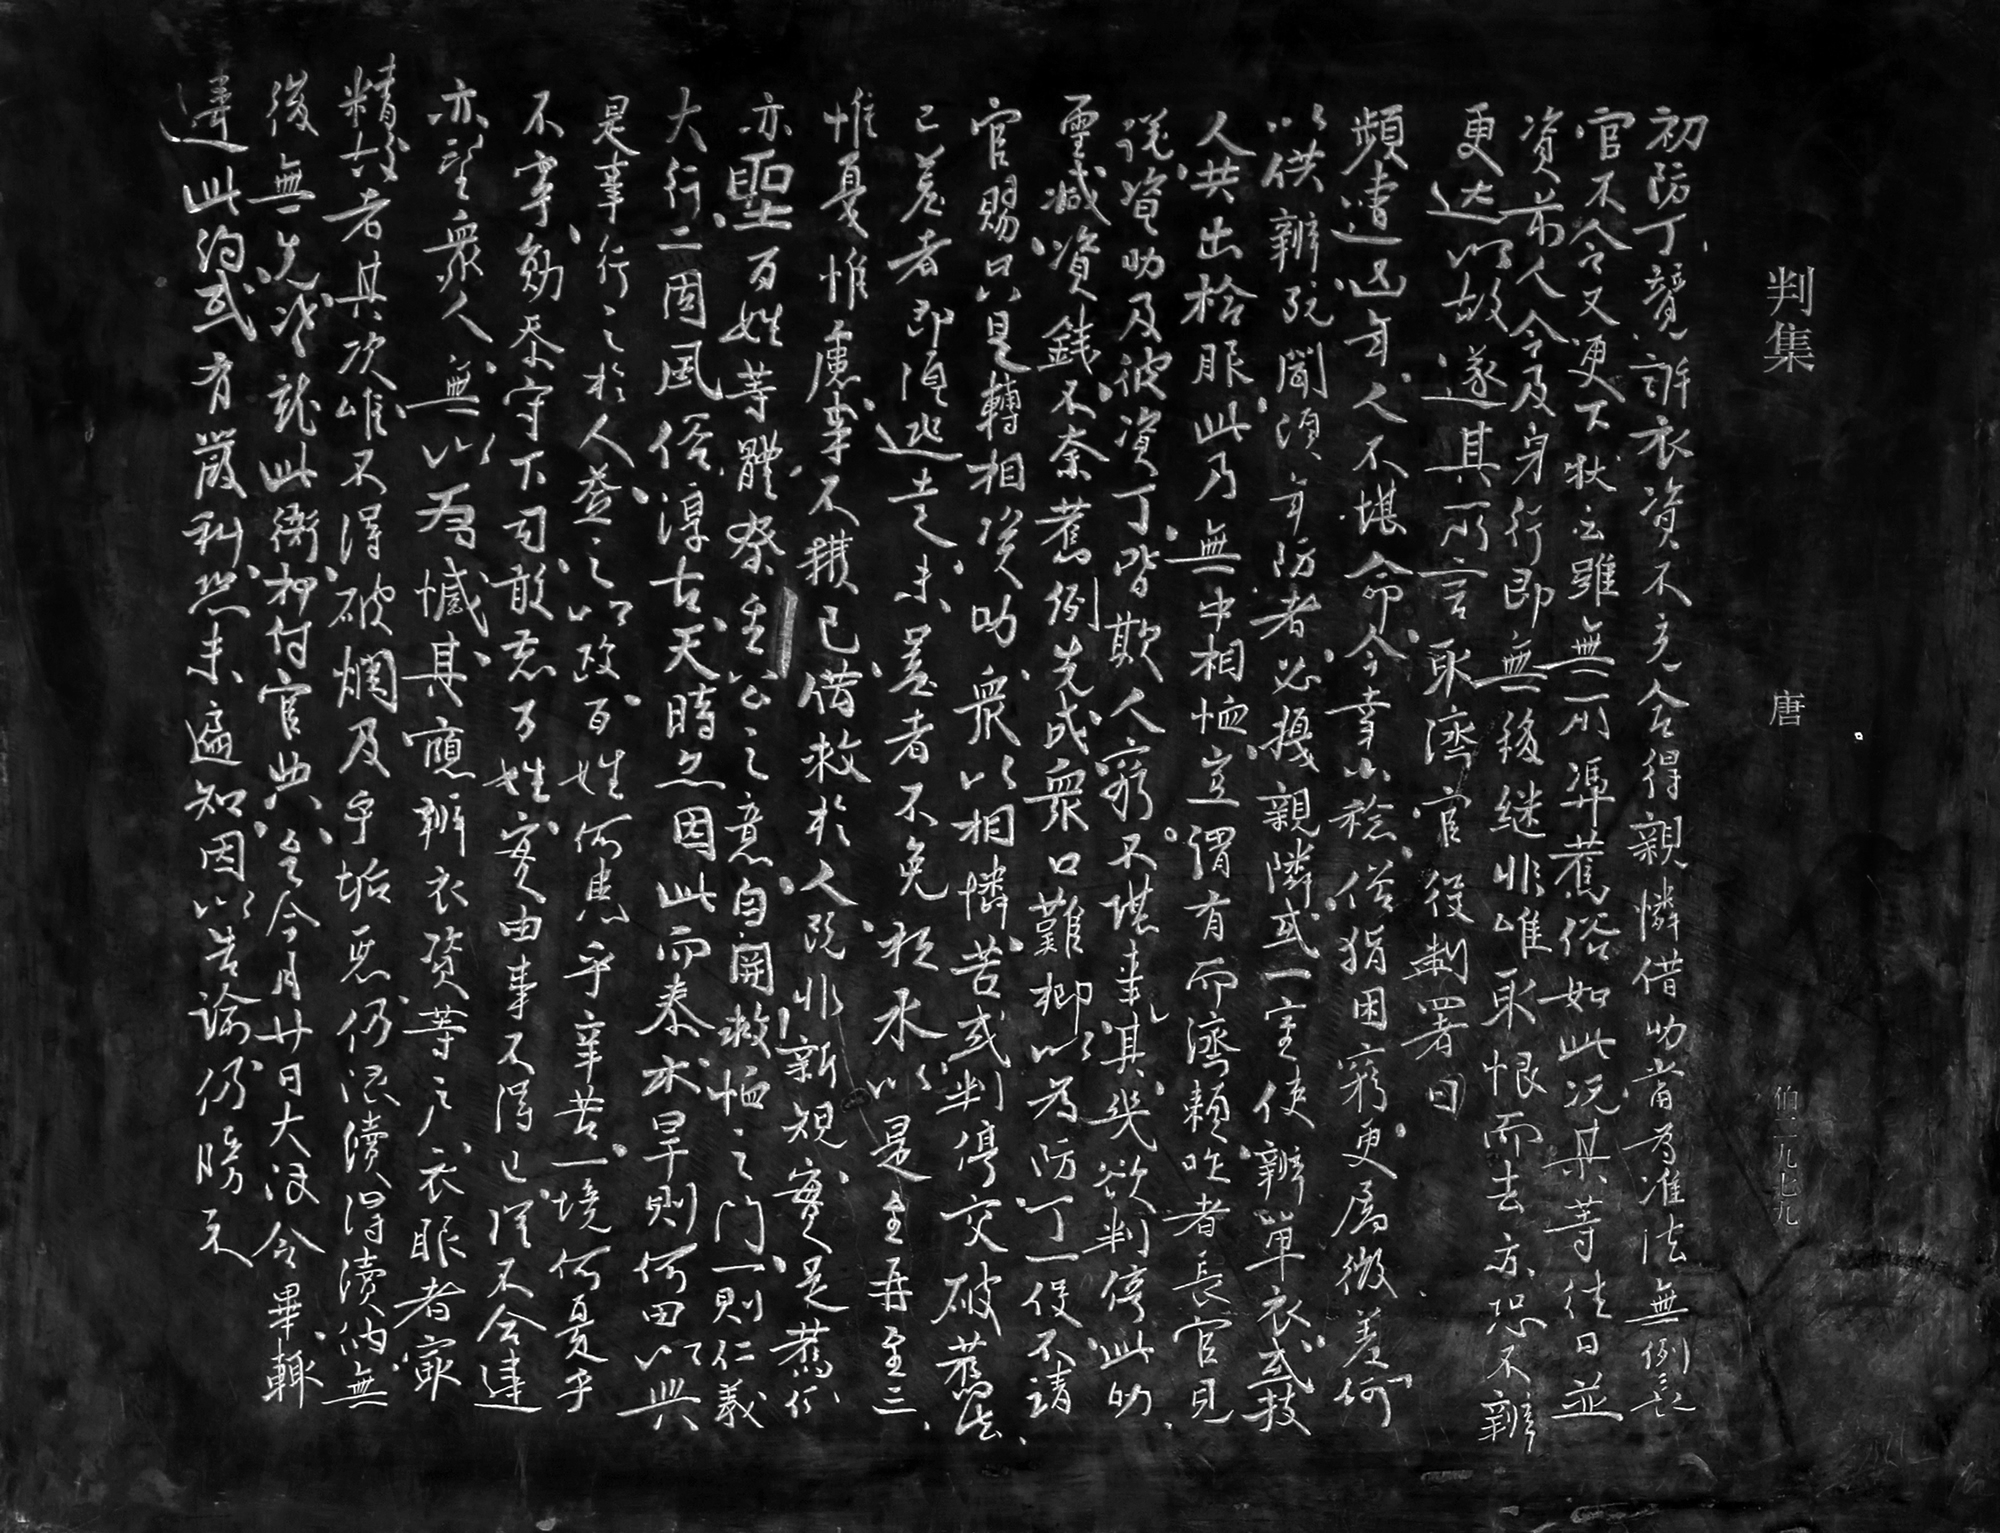 判集　唐　伯二九七九
初防丁競訴衣資不充合得親憐借助當爲准法無例長
官不令又更下狀云雖無所憑舊俗如此況某等往日並
資前人今及身行即無後継非唯取恨而去亦恐不辦
更達以故遂其所言取濟官役判署曰
頻遭凶年人不堪命今幸小稔俗猶困窮更属徵差何
以供辦既聞須年防者必擾親隣或一室使辦單衣或
人共出袷服此乃無中相恤豈謂有而濟賴昨者長官見
説資助及彼資丁皆欺人窮不堪事其幾欲判停此助
減資錢不奈舊例先成衆口難抑以爲防丁一役不請
官賜只是轉相資助衆以相憐苦或判停交破舊法
已差者即須逃走未差者不免祇承以是至再至三
惟憂惟慮事不獲已借救於人既非新規實是舊例
亦望百姓等體察至公之意自開救恤之門一則仁義
大行二固風俗淳古天時亦因此而泰水旱則何田以興
是事行之於人益之以政百姓何患乎辛苦一境何憂乎
不寧勛忝守下司敢忘百姓實由事不得已理不合違
亦望衆人無以爲憾其應辦衣資等户衣服者最
精故者其次唯不得破爛及乎垢惡仍限續得續納無
後無先就此衙押付官典至今月廿日大限令畢輒
違此約或有嚴科恐未遍知因以告諭仍牓示